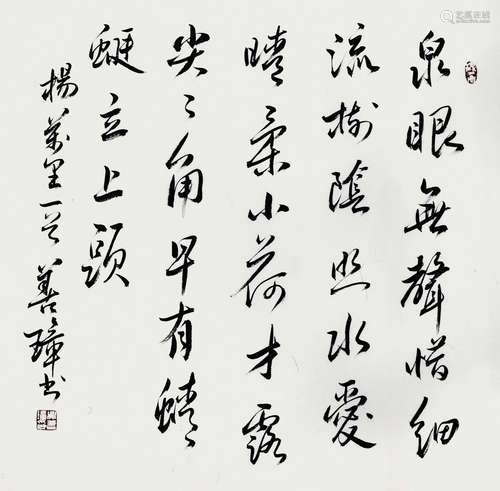 泉眼無聲惜細
流樹陰照水愛
晴柔小荷才露
尖〻角早有蜻
蜓立上頭
楊萬里一首 善璋书